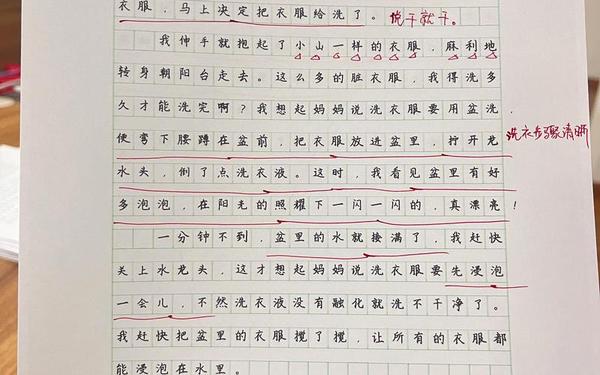 衣服，马上决定把衣服给洗了。 说干就干。
我伸手就抱起了小山一样的衣服，麻利地
转身朝阳台走去。这么多的脏衣服，我得洗多
久才能洗完啊？我想起妈妈说洗衣服要用盆洗，
便弯下腰蹲在盆前，把衣服放进盆里，拧开龙
洗衣步骤清晰
水头，倒了点洗衣液。这时，我看见盆里有好
多泡泡，在阳光的照耀下一闪一闪的，真漂亮！
一分钟不到，盆里的水就接满了，我赶快
关上水龙头，这才想起妈妈说洗衣服要先浸泡
一会儿，不然洗衣液没有融化就洗不干净了。
我赶快把盆里的衣服搅了搅，让所有的衣服都
能浸泡在水里。